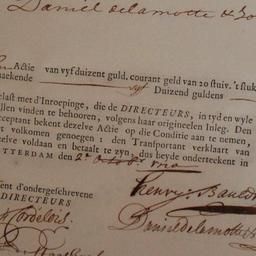 Daniel delamotte & So
Actie van vyf duizent guld. courant geld van 20 stuiv. 't stuk
makende vyf Duizend guldens
elast met d'Inroepinge, die de DIRECTEURS, in tyd en wyle
llen vinden te behooren, volgens haar origineelen Inleg. Den
cceptant bekent dezelve Actie op die Conditie aan te nemen,
t volkomen genoegen: den Transportant verklaart van
zelve voldaan en betaalt te zyn; dus beyde onderteekent in
TTERDAM den 2e
Henry Bauld
ent d'ondergeschrevene
DIRECTEURS
Daniel delamotte &
Cordelois